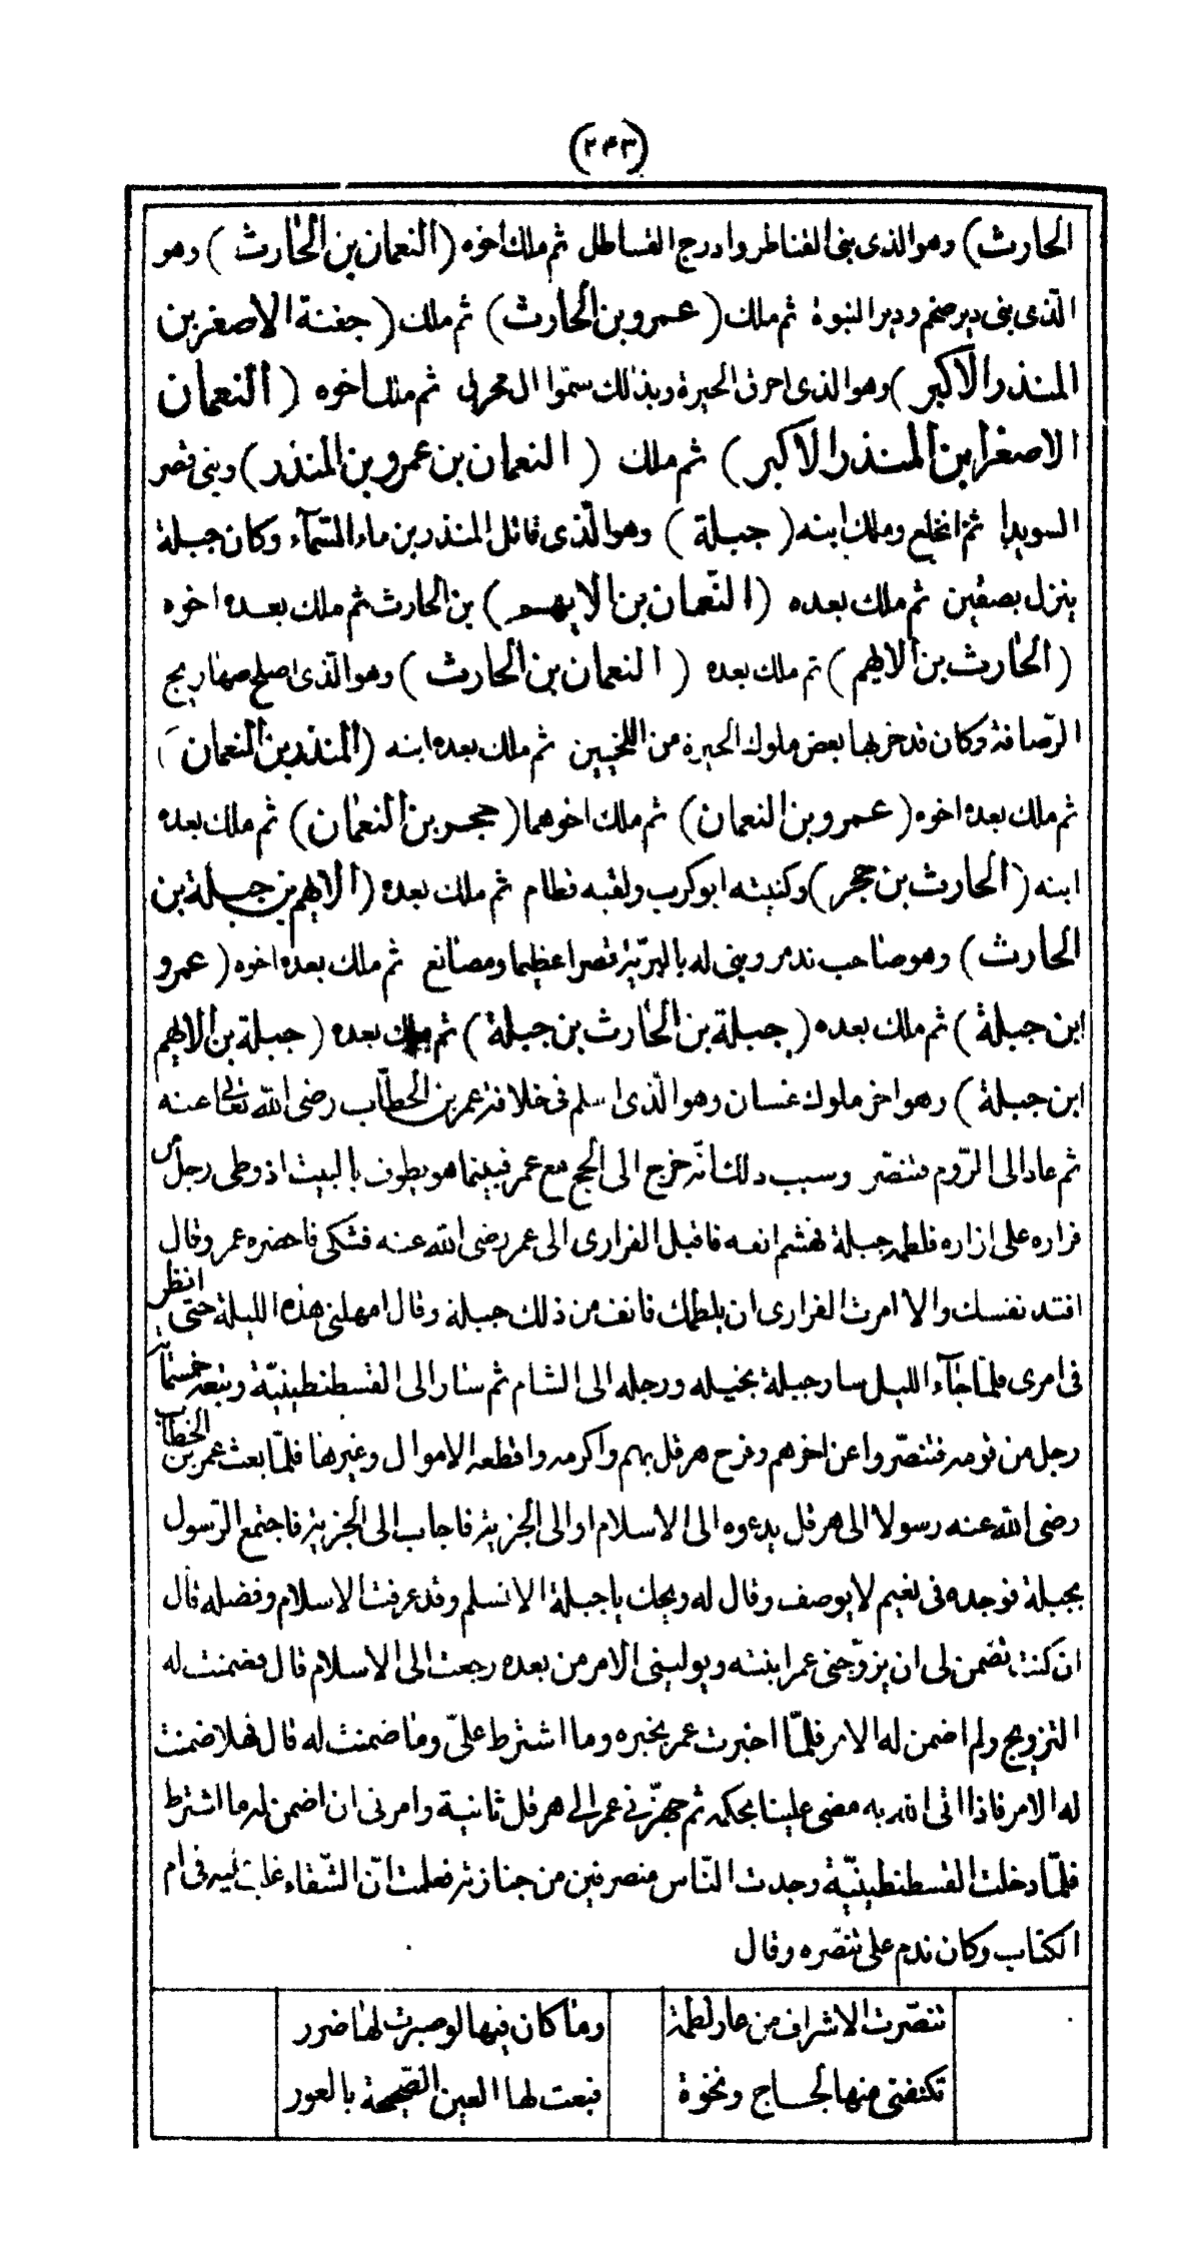 (٢٤٣)
الحارث) وهو الذى بنى القناطر وادرج القساطل ثم ملك اخوه (النعمان بن الحارث) وهو
الّذى بنى دير ضخم ودير النبوة ثم ملك (عمرو بن الحارث) ثم ملك (جفنة الاصغر بن
المنذر الاكبر) وهو الذى احرق الحيرة وبذلك سمّوا ال محرق ثم ملك اخوه (النعمان
الاصغر ابن المنذر الاكبر) ثم ملك (النعمان بن عمرو بن المنذر) وبنى قصر
السويدا ثم انخلع وملك ابنه (جبلة) وهو الّذى قاتل المنذر بن ماء السّمآء وكان جبلة
ينزل بصفين ثم ملك بعده (النّعمان بن الايهم) بن الحارث ثم ملك بعده اخوه
(الحارث بن الايهم) ثم ملك بعده (النعمان بن الحارث) وهو الّذى اصلح صهاريج
الرّصافة وكان قد خربها بعض ملوك الحيرة من اللخميين ثم ملك بعده ابنه (المنذر بن النعمان)
ثم ملك بعده اخوه (عمرو بن النعمان) ثم ملك اخوهما (حجر بن النعمان) ثم ملك بعده
ابنه (الحارث بن حجر) وكنيته ابو كرب ولقبه قطام ثم ملك بعده (الايهم بن جبلة بن
الحارث) وهو صاحب تدمر وبنى له بالبرّية قصرا عظيما ومصانع ثم ملك بعده اخوه (عمرو
ابن جبلة) ثم ملك بعده (جبلة بن الحارث بن جبلة) ثم ملك بعده (جبلة بن الايهم
ابن جبلة) وهو اخر ملوك غسان وهو الّذى اسلم فى خلافة عمر بن الخطّاب رضى الله تعالى عنه
ثم عاد الى الرّوم متنصّر وسبب ذلك انّه خرج الى الحج مع عمر فبينما هو يطوف بالبيت اذ وطى رجل من
فزاره على ازاره فلطمه جبلة فهشم انفه فاقبل الفزارى الى عمر رضى الله عنه فشكى فاحضره عمر وقال
افتد نفسك والا امرت الفزارى ان يلطمك فانف من ذلك جبلة وقال امهلنى هذه الليلة حتى انظر
فى امرى فلمّا جآء الليل سار جبلة بخيله ورجله الى الشام ثم سار الى القسطنطينيّة وتبعه خمسمائة
رجل من قومه فتنصّروا عن اخرهم وفرح هرقل بهم واكرمه واقطعه الاموال وغيرها فلمّا بعث عمر بن الخطاب
رضى الله عنه رسولا الى هرقل يدعوه الى الاسلام او الى الجزية فاجاب الى الجزية فاجتمع الرّسول
بجبلة فوجده فى نعيم لا يوصف وقال له ويحك ياجبلة الا تسلم وقد عرفت الاسلام وفضله قال
ان كنت تضمن لى ان يزوّجنى عمر ابنته ويولينى الامر من بعده رجعت الى الاسلام قال فضمنت له
التزويج ولم اضمن له الامر فلمّا اخبرت عمر بخبره وما اشترط علىّ وما ضمنت له قال فهلا ضمنت
له الامر فاذا اتى الله به مضى علينا بحكمه ثم جهزّنى عمر الى هرقل ثانية وامرنى ان اضمن له ما اشترط
فلمّا دخلت القسطنطينيّة وجدت النّاس منصرفين من جنازته فعلمت انّ الشّقاء غلب عليه فى ام
الكتاب وكان ندم على تنصّره وقال
تنصّرت الاشراف من عار لطمة وما كان فيها لو صبرت لها ضرر
تكنفنى منها لجاج ونخوة فبعت لها العين الصّحيحة بالعور